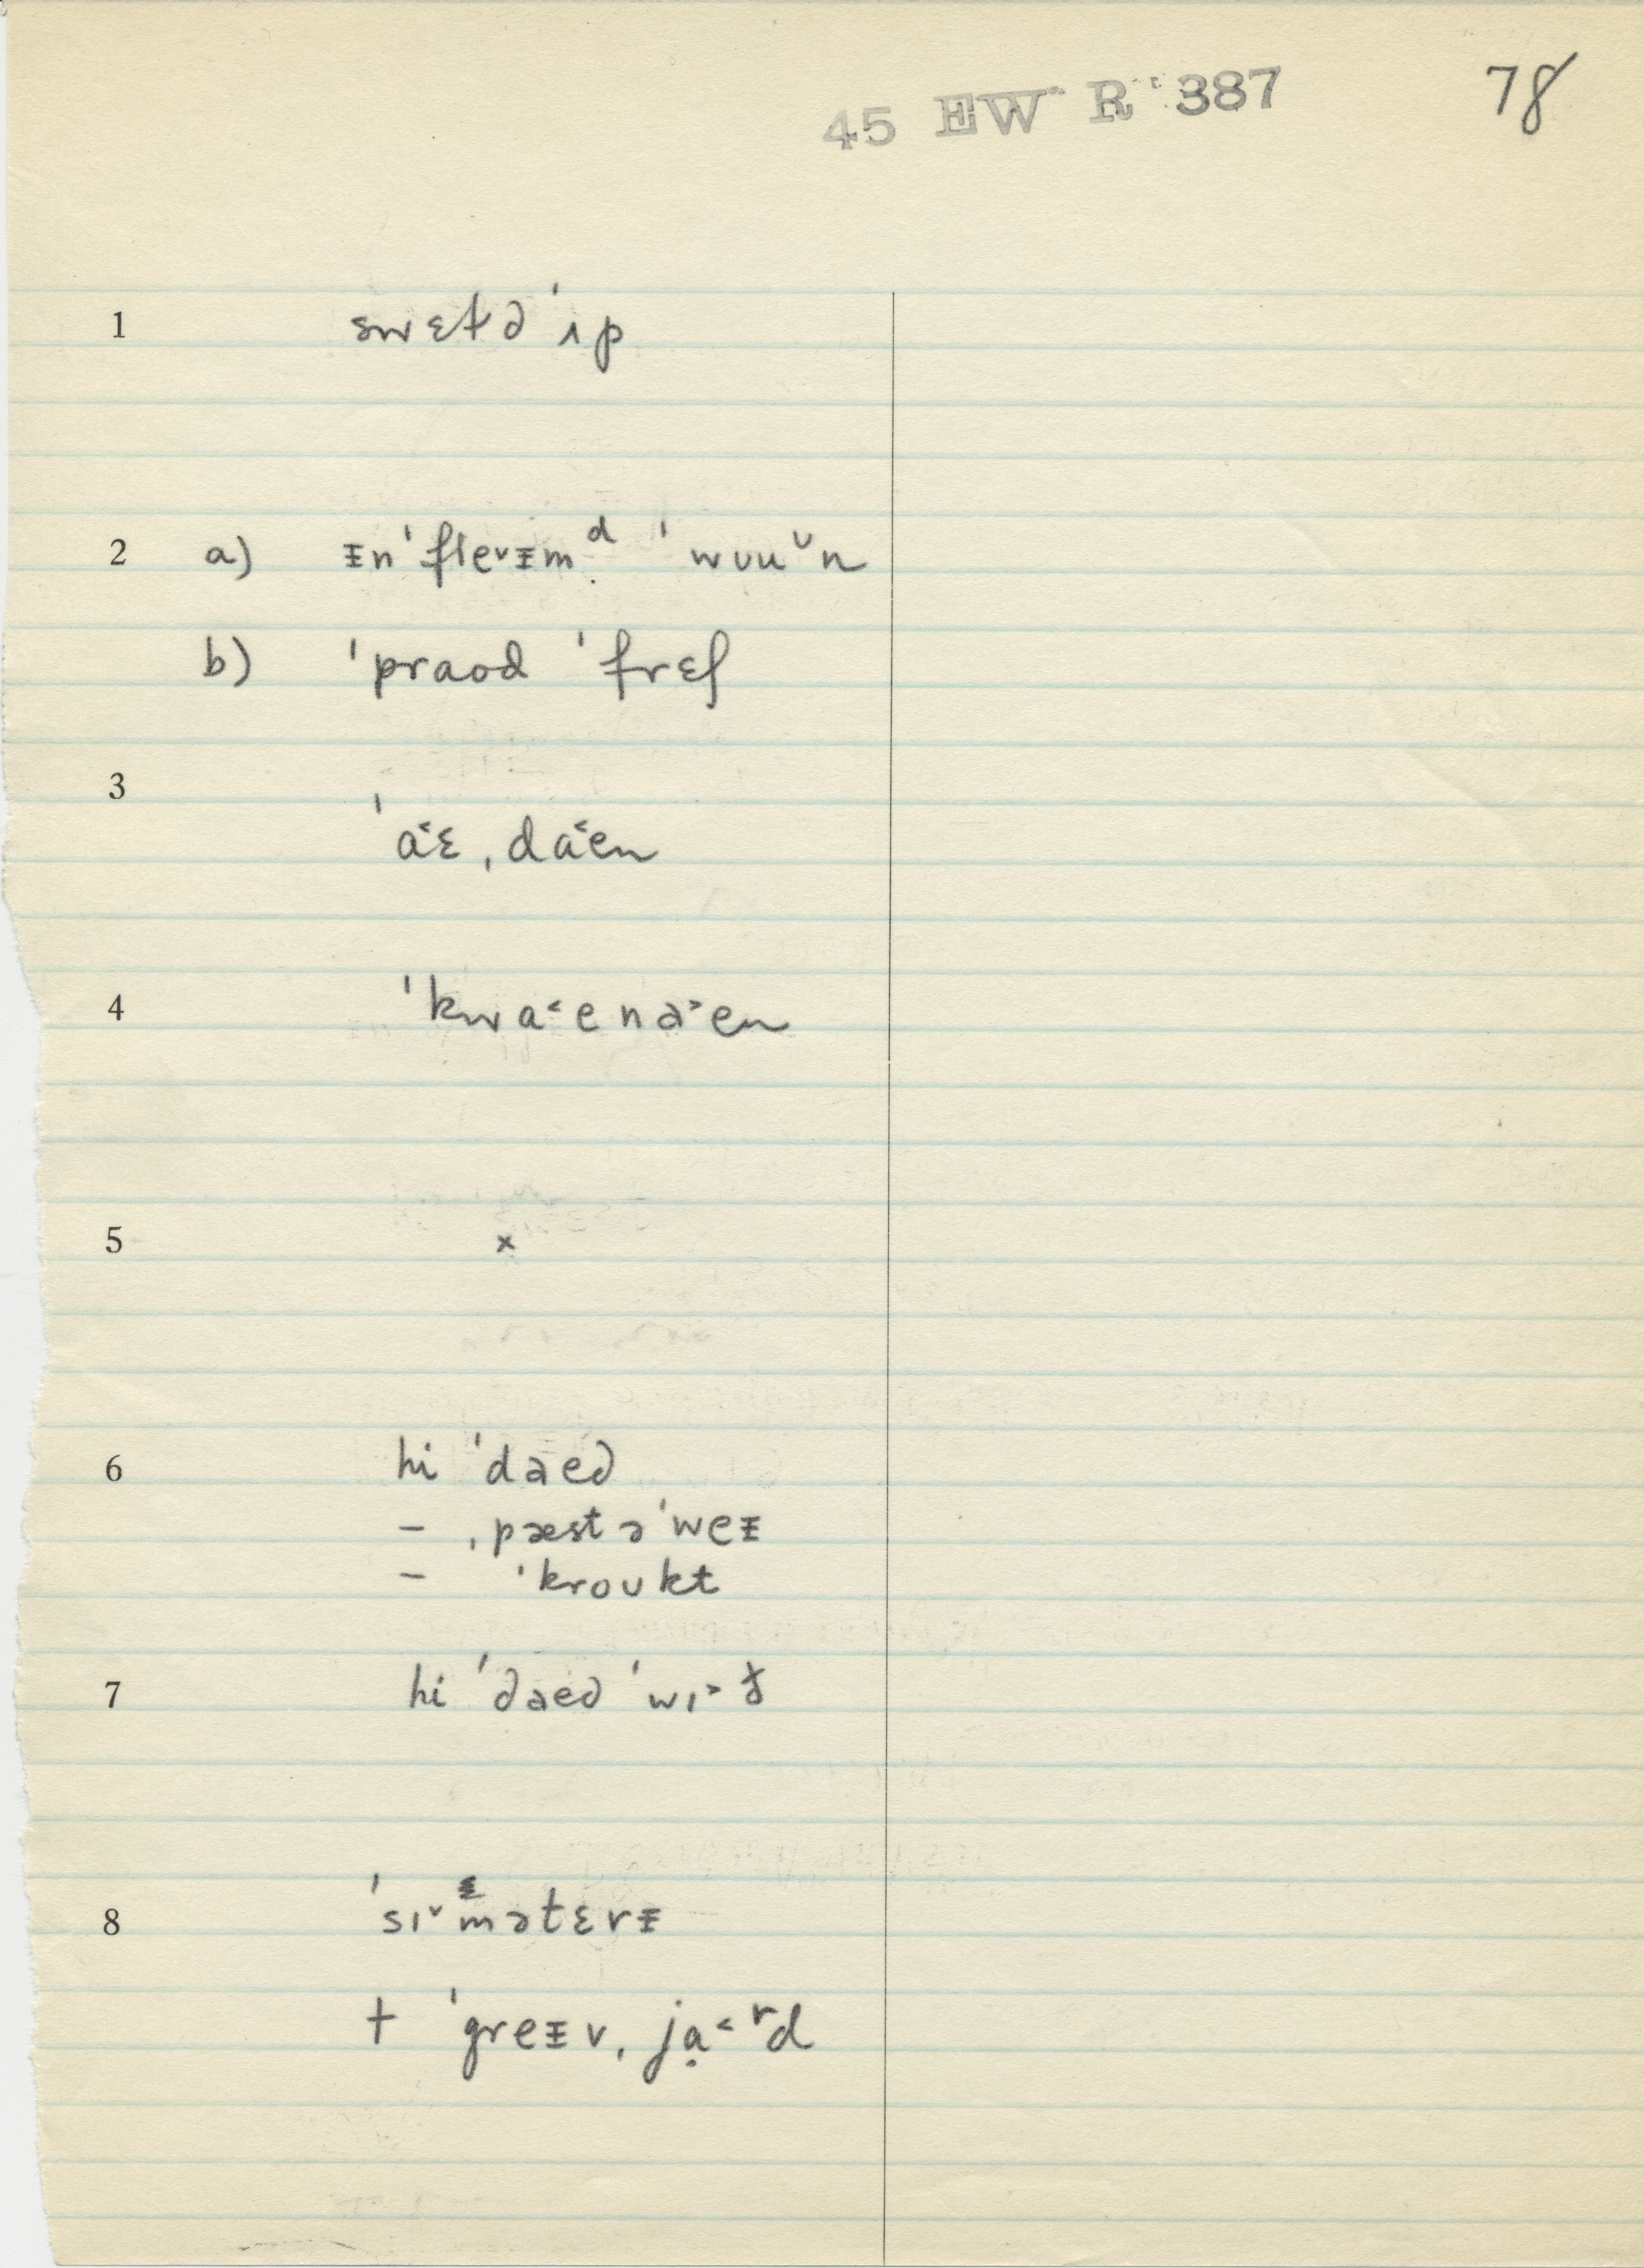 45 EW R 387 78
1 swɛtəd ˈʌp
2 a) ᵻnˈfle˅ᵻmᵈ ˈwʊu˅n
b) ˈpraod ˈfrɛʃ
3
ˈa˂ɛ ˌda˂en
4 ˈkwa˂enə˃en
5 ×
6 hi ˈdaed
– ˌpæst əˈweᵻ
– ˈkroʊkt
7 hi ˈdaed ˈwɪ˃ð
8 ˈsɪ˅mətɛrᵻ
+ ˈgreᵻvˌja̤˂ʳd